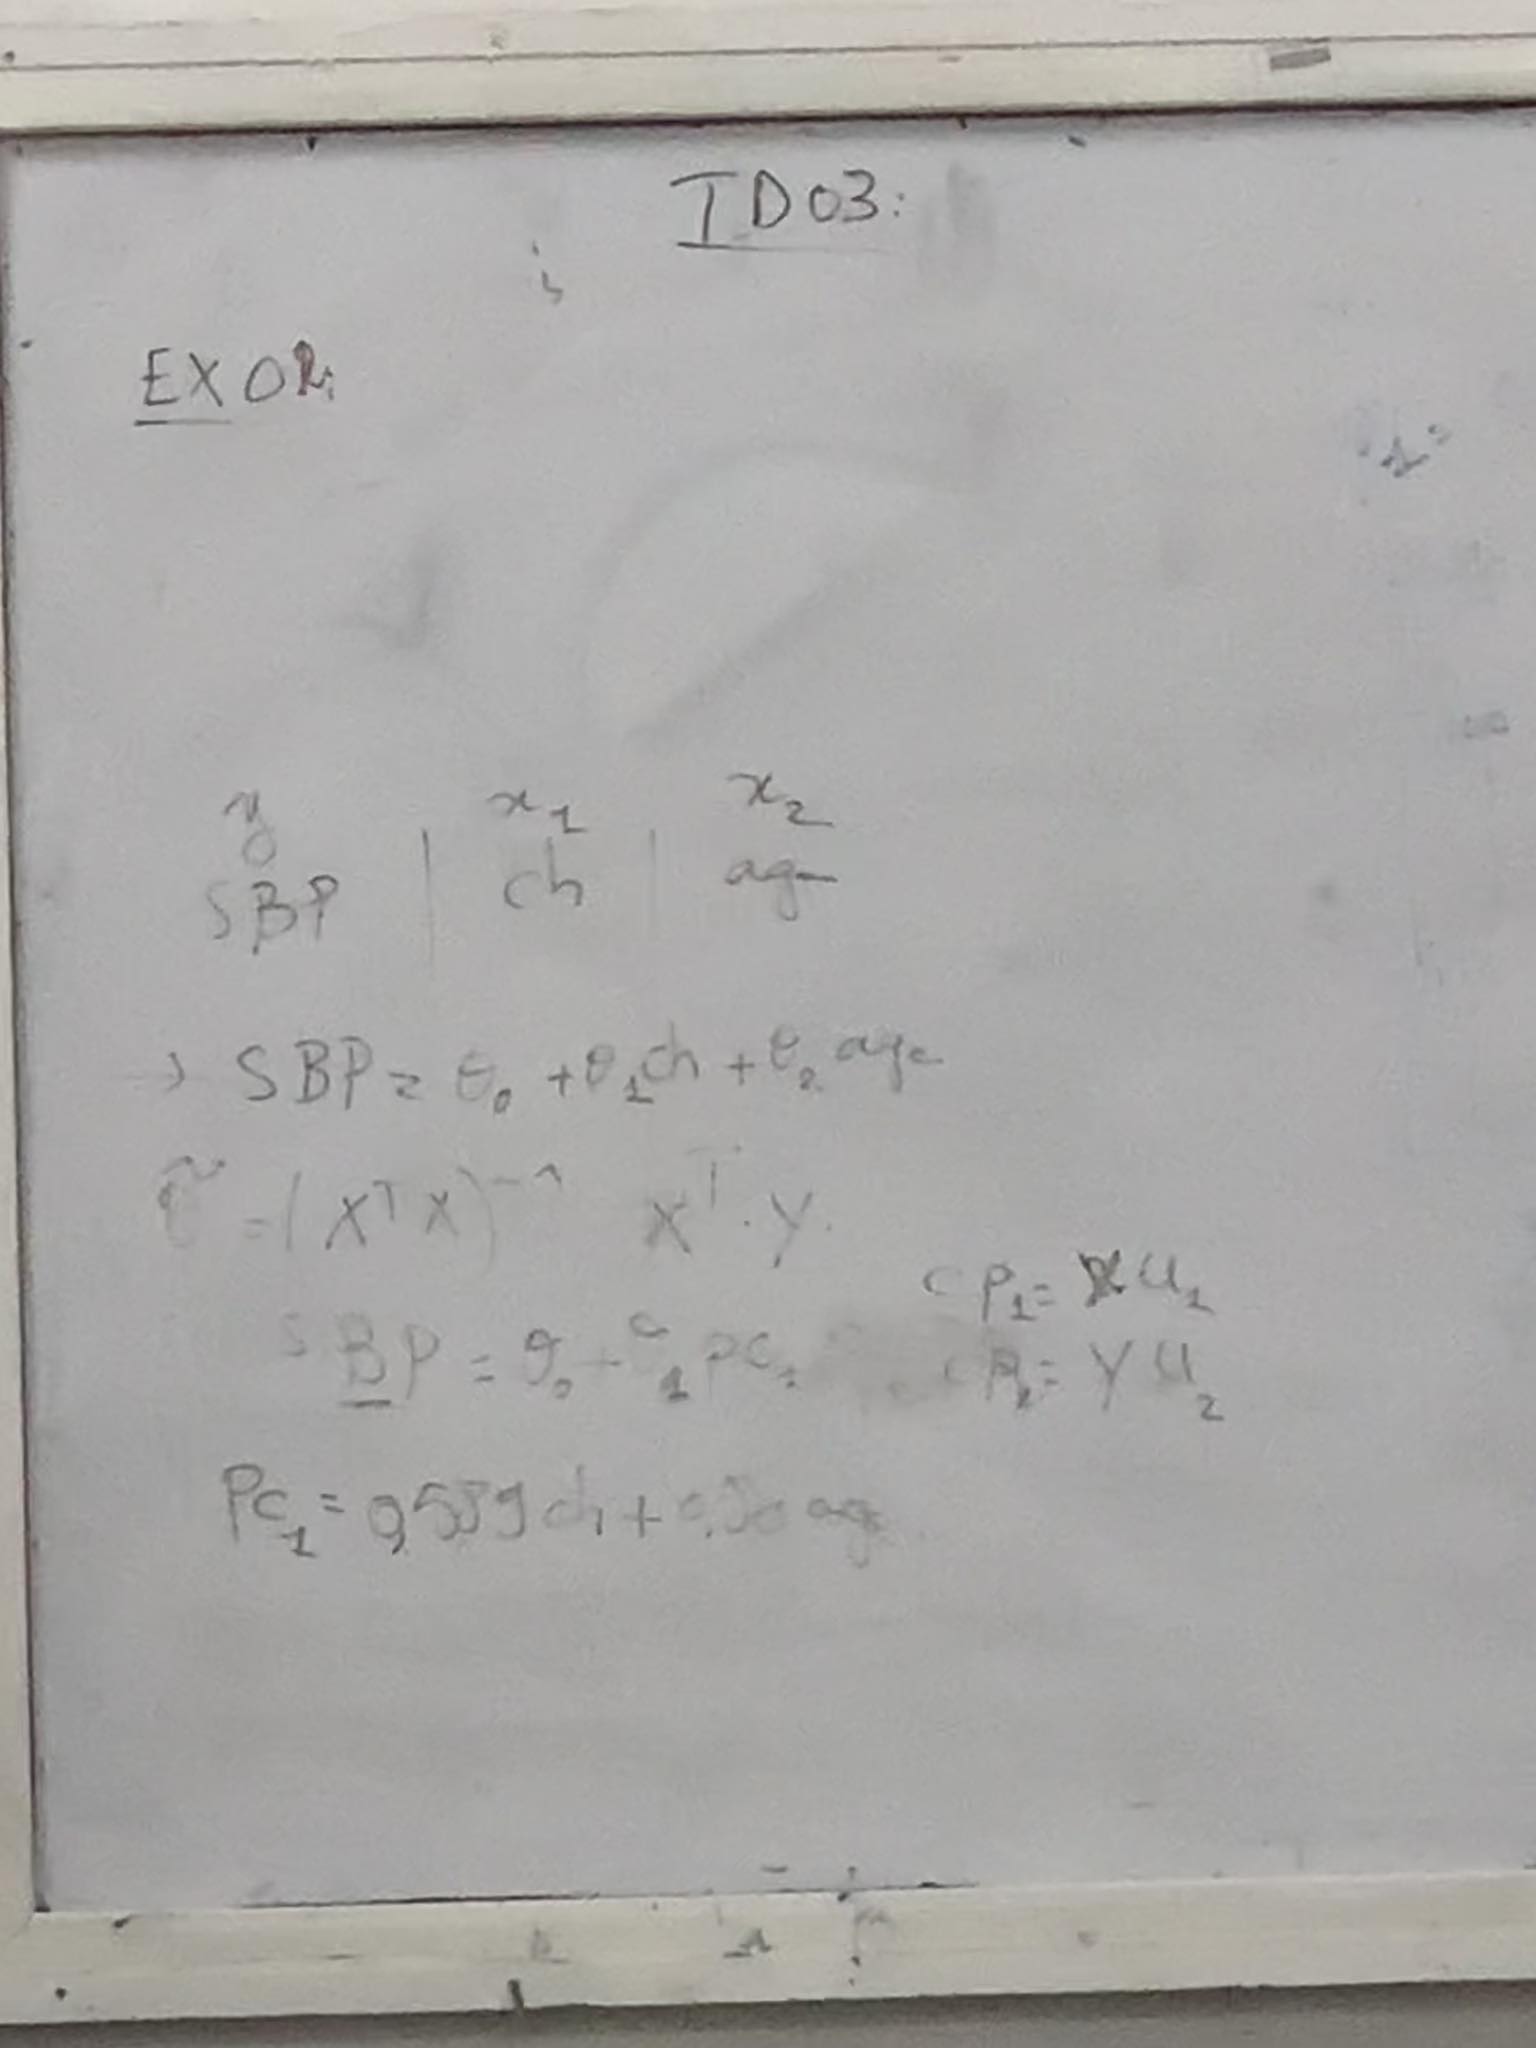 TD03:
EX02:
y | x₁ | x₂
SBP | ch | age
→ SBP = θ₀ + θ₁ch + θ₂ age
θ̃ = (XᵀX)⁻¹ Xᵀ.Y.
CP₁ = XU₁
SBP = θ₀ + θ₁ PC₁
CP₂ = YU₂
PC₁ = 0,589 ch + age